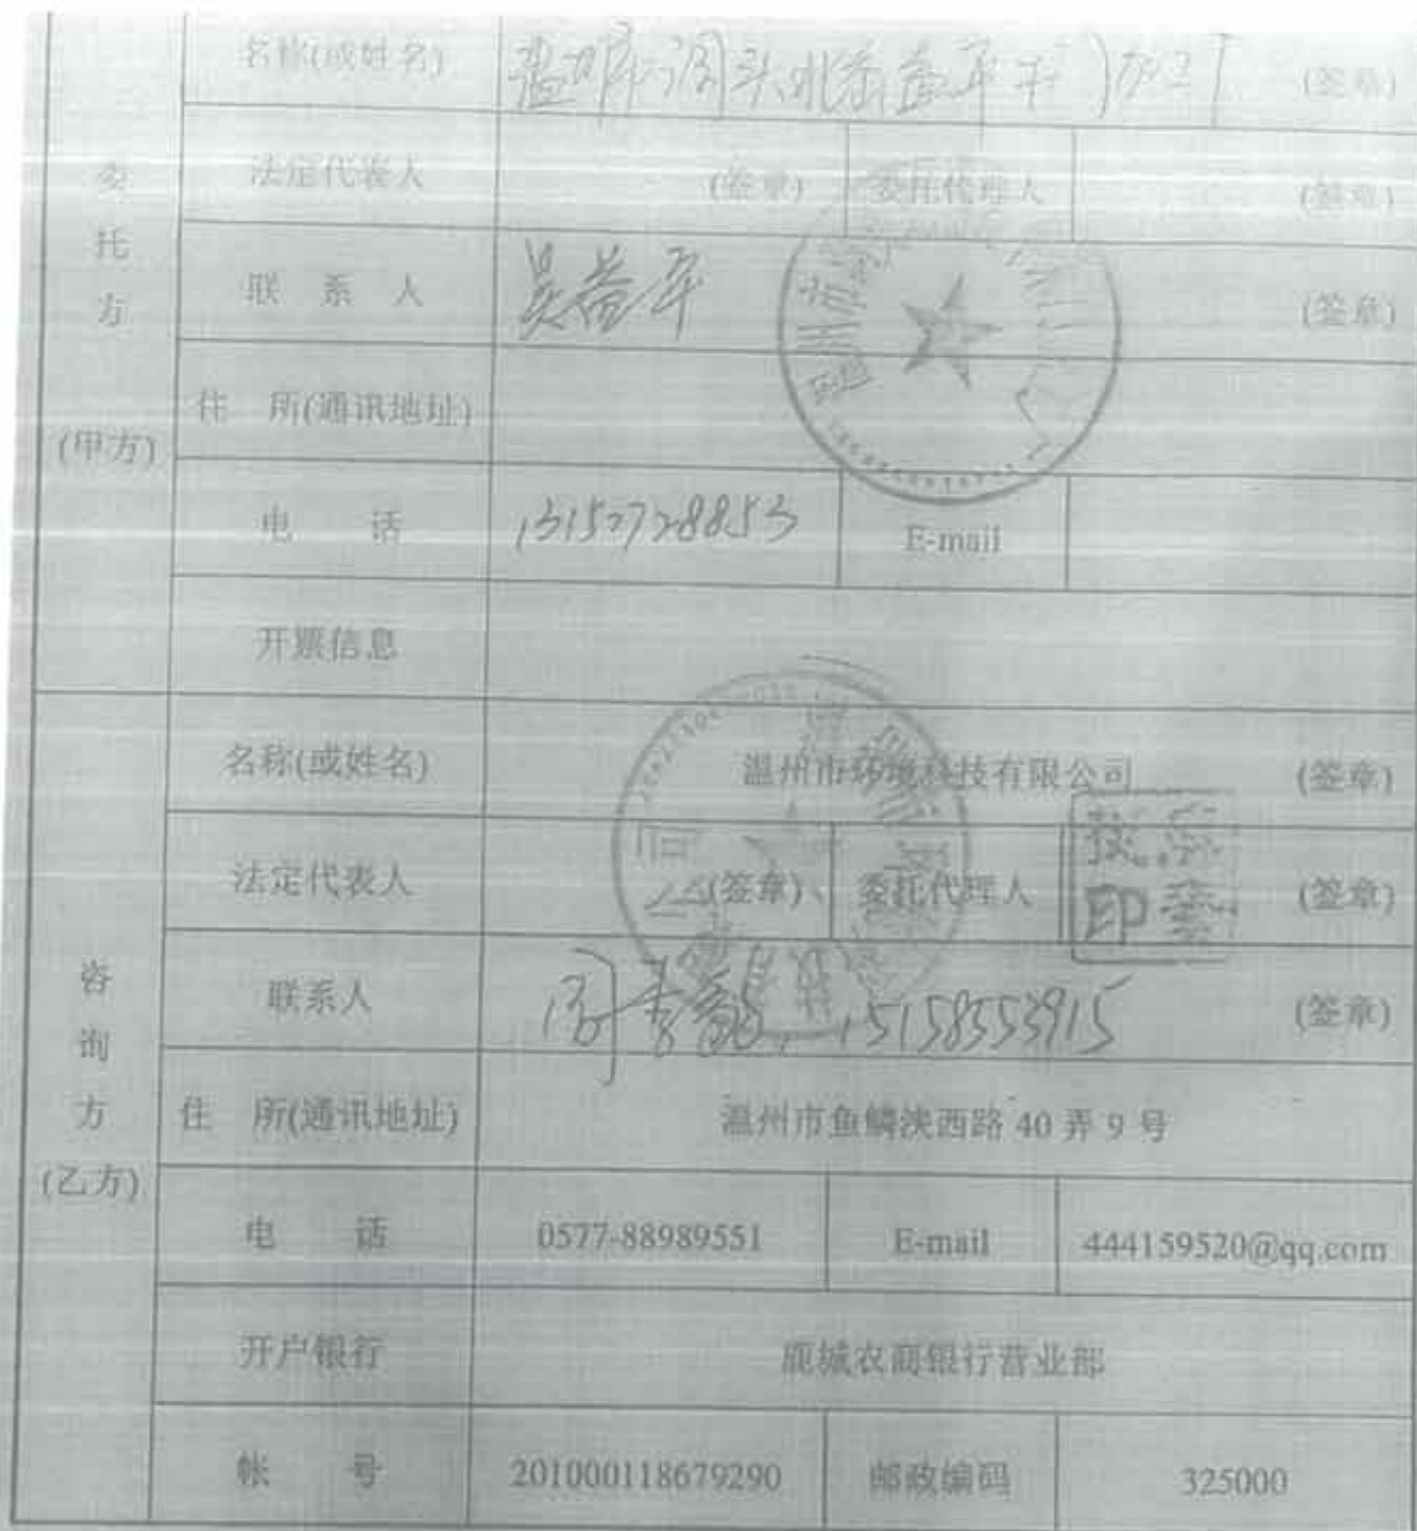 名称(或姓名) (签章)
委托方(甲方)
法定代表人 (签章) 委托代理人 (签章)
联 系 人 吴益平 (签章)
住 所(通讯地址)
电 话 13157728853 E-mail
开票信息
咨询方(乙方)
名称(或姓名) 温州市环境科技有限公司 (签章)
法定代表人 (签章) 委托代理人 (签章)
联系人 15158553915 (签章)
住 所(通讯地址) 温州市鱼鳞浃西路 40 弄 9 号
电 话 0577-88989551 E-mail 444159520@qq.com
开户银行 鹿城农商银行营业部
帐 号 201000118679290 邮政编码 325000